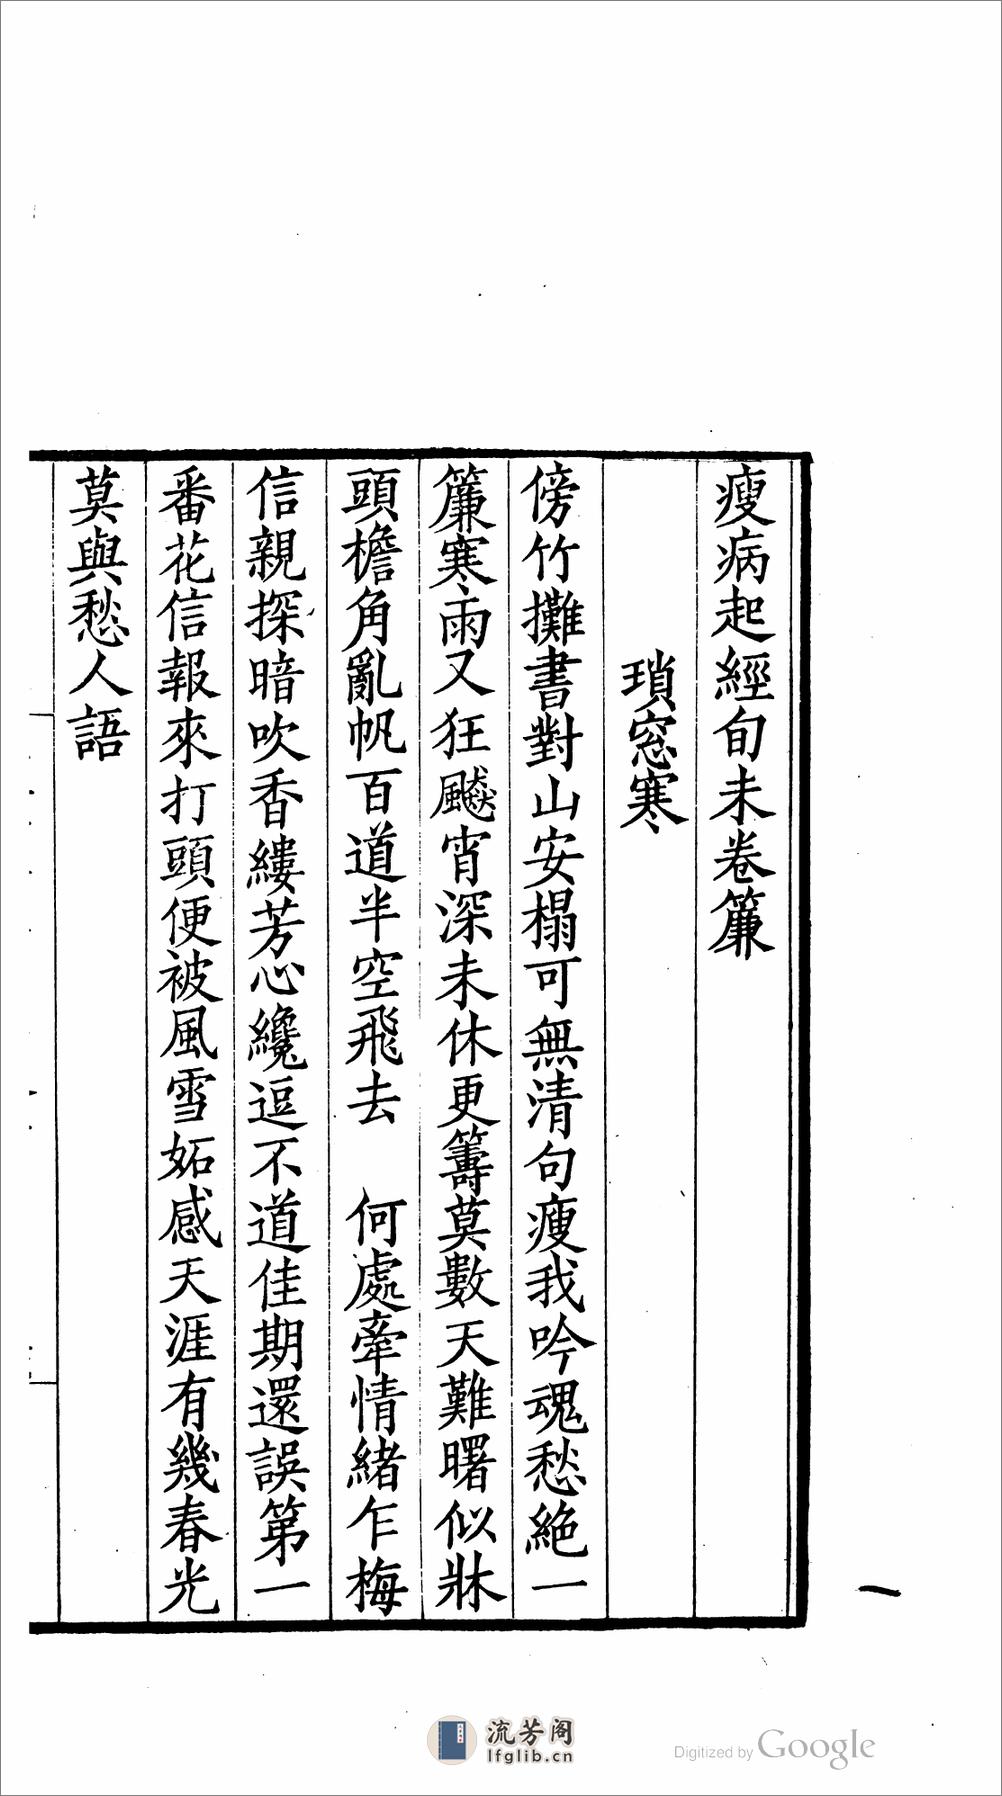 瘦病起經旬未卷簾
瑣窓寒
傍竹攤書對山安榻可無清句瘦我吟魂愁絕一
簾寒雨又狂飇宵深未休更籌莫數天難曙似牀
頭檐角亂帆百道半空飛去　何處牽情緒乍梅
信親探暗吹香縷芳心纔逗不道佳期還誤第一
番花信報來打頭便被風雪妬感天涯有幾春光
莫與愁人語
一
流芳阁
lfglib.cn
Digitized by Google